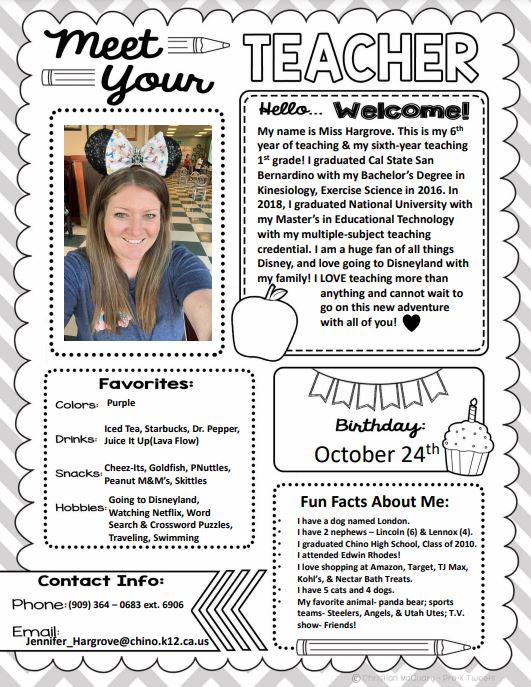 Meet
Your
TEACHER
Hello... Welcome!
My name is Miss Hargrove. This is my 6th
year of teaching & my sixth-year teaching
1st grade! I graduated Cal State San
Bernardino with my Bachelor's Degree in
Kinesiology, Exercise Science in 2016. In
2018, I graduated National University with
my Master's in Educational Technology
with my multiple-subject teaching
credential. I am a huge fan of all things
Disney, and love going to Disneyland with
my family! I LOVE teaching more than
anything and cannot wait to
go on this new adventure
with all of you!
Favorites:
Colors: Purple
Drinks: Iced Tea, Starbucks, Dr. Pepper,
Juice It Up(Lava Flow)
Snacks: Cheez-Its, Goldfish, PNuttles,
Peanut M&M's, Skittles
Hobbies: Going to Disneyland,
Watching Netflix, Word
Search & Crossword Puzzles,
Traveling, Swimming
Birthday:
October 24th
Fun Facts About Me:
I have a dog named London.
I have 2 nephews – Lincoln (6) & Lennox (4).
I graduated Chino High School, Class of 2010.
I attended Edwin Rhodes!
I love shopping at Amazon, Target, TJ Max,
Kohl's, & Nectar Bath Treats.
I have 5 cats and 4 dogs.
My favorite animal- panda bear; sports
teams- Steelers, Angels, & Utah Utes; T.V.
show- Friends!
Contact Info:
Phone: (909) 364 – 0683 ext. 6906
Email:
Jennifer_Hargrove@chino.k12.ca.us
© Christian McQuary- Pre-K Tweets